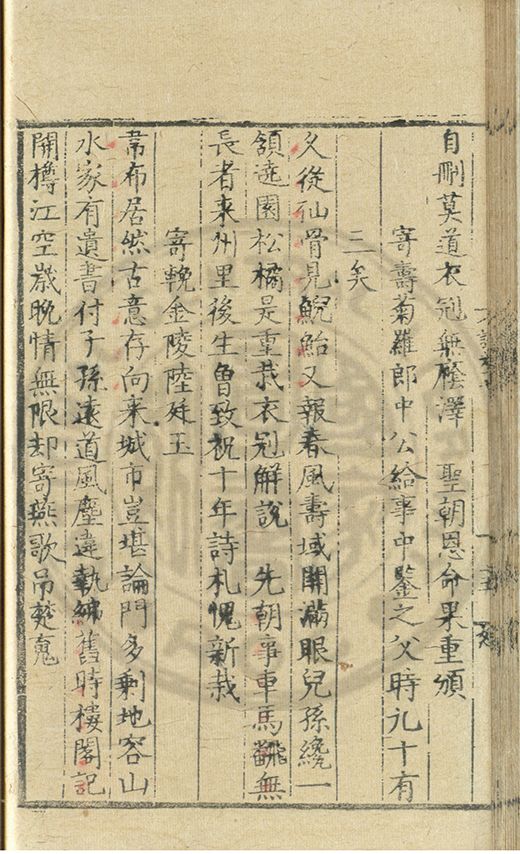 自刪莫道衣冠無廕澤 聖朝恩命果重頒
寄壽菊羅郎中公給事中鑒之父時九十有
三矣
久從仙骨見鯢鮐又報春風壽域開滿眼兒孫繞一
領遶園松橘是重栽衣冠解說 先朝事車馬翻無
長者来州里後生曾致祝十年詩札愧新裁
寄輓金陵陸廷玉
韋布居然古意存向来城市豈堪論門多剩地容山
水家有遺書付子孫遠道風塵違執紼舊時樓閣記
開樽江空歲晚情無限却寄燕歌吊楚魂